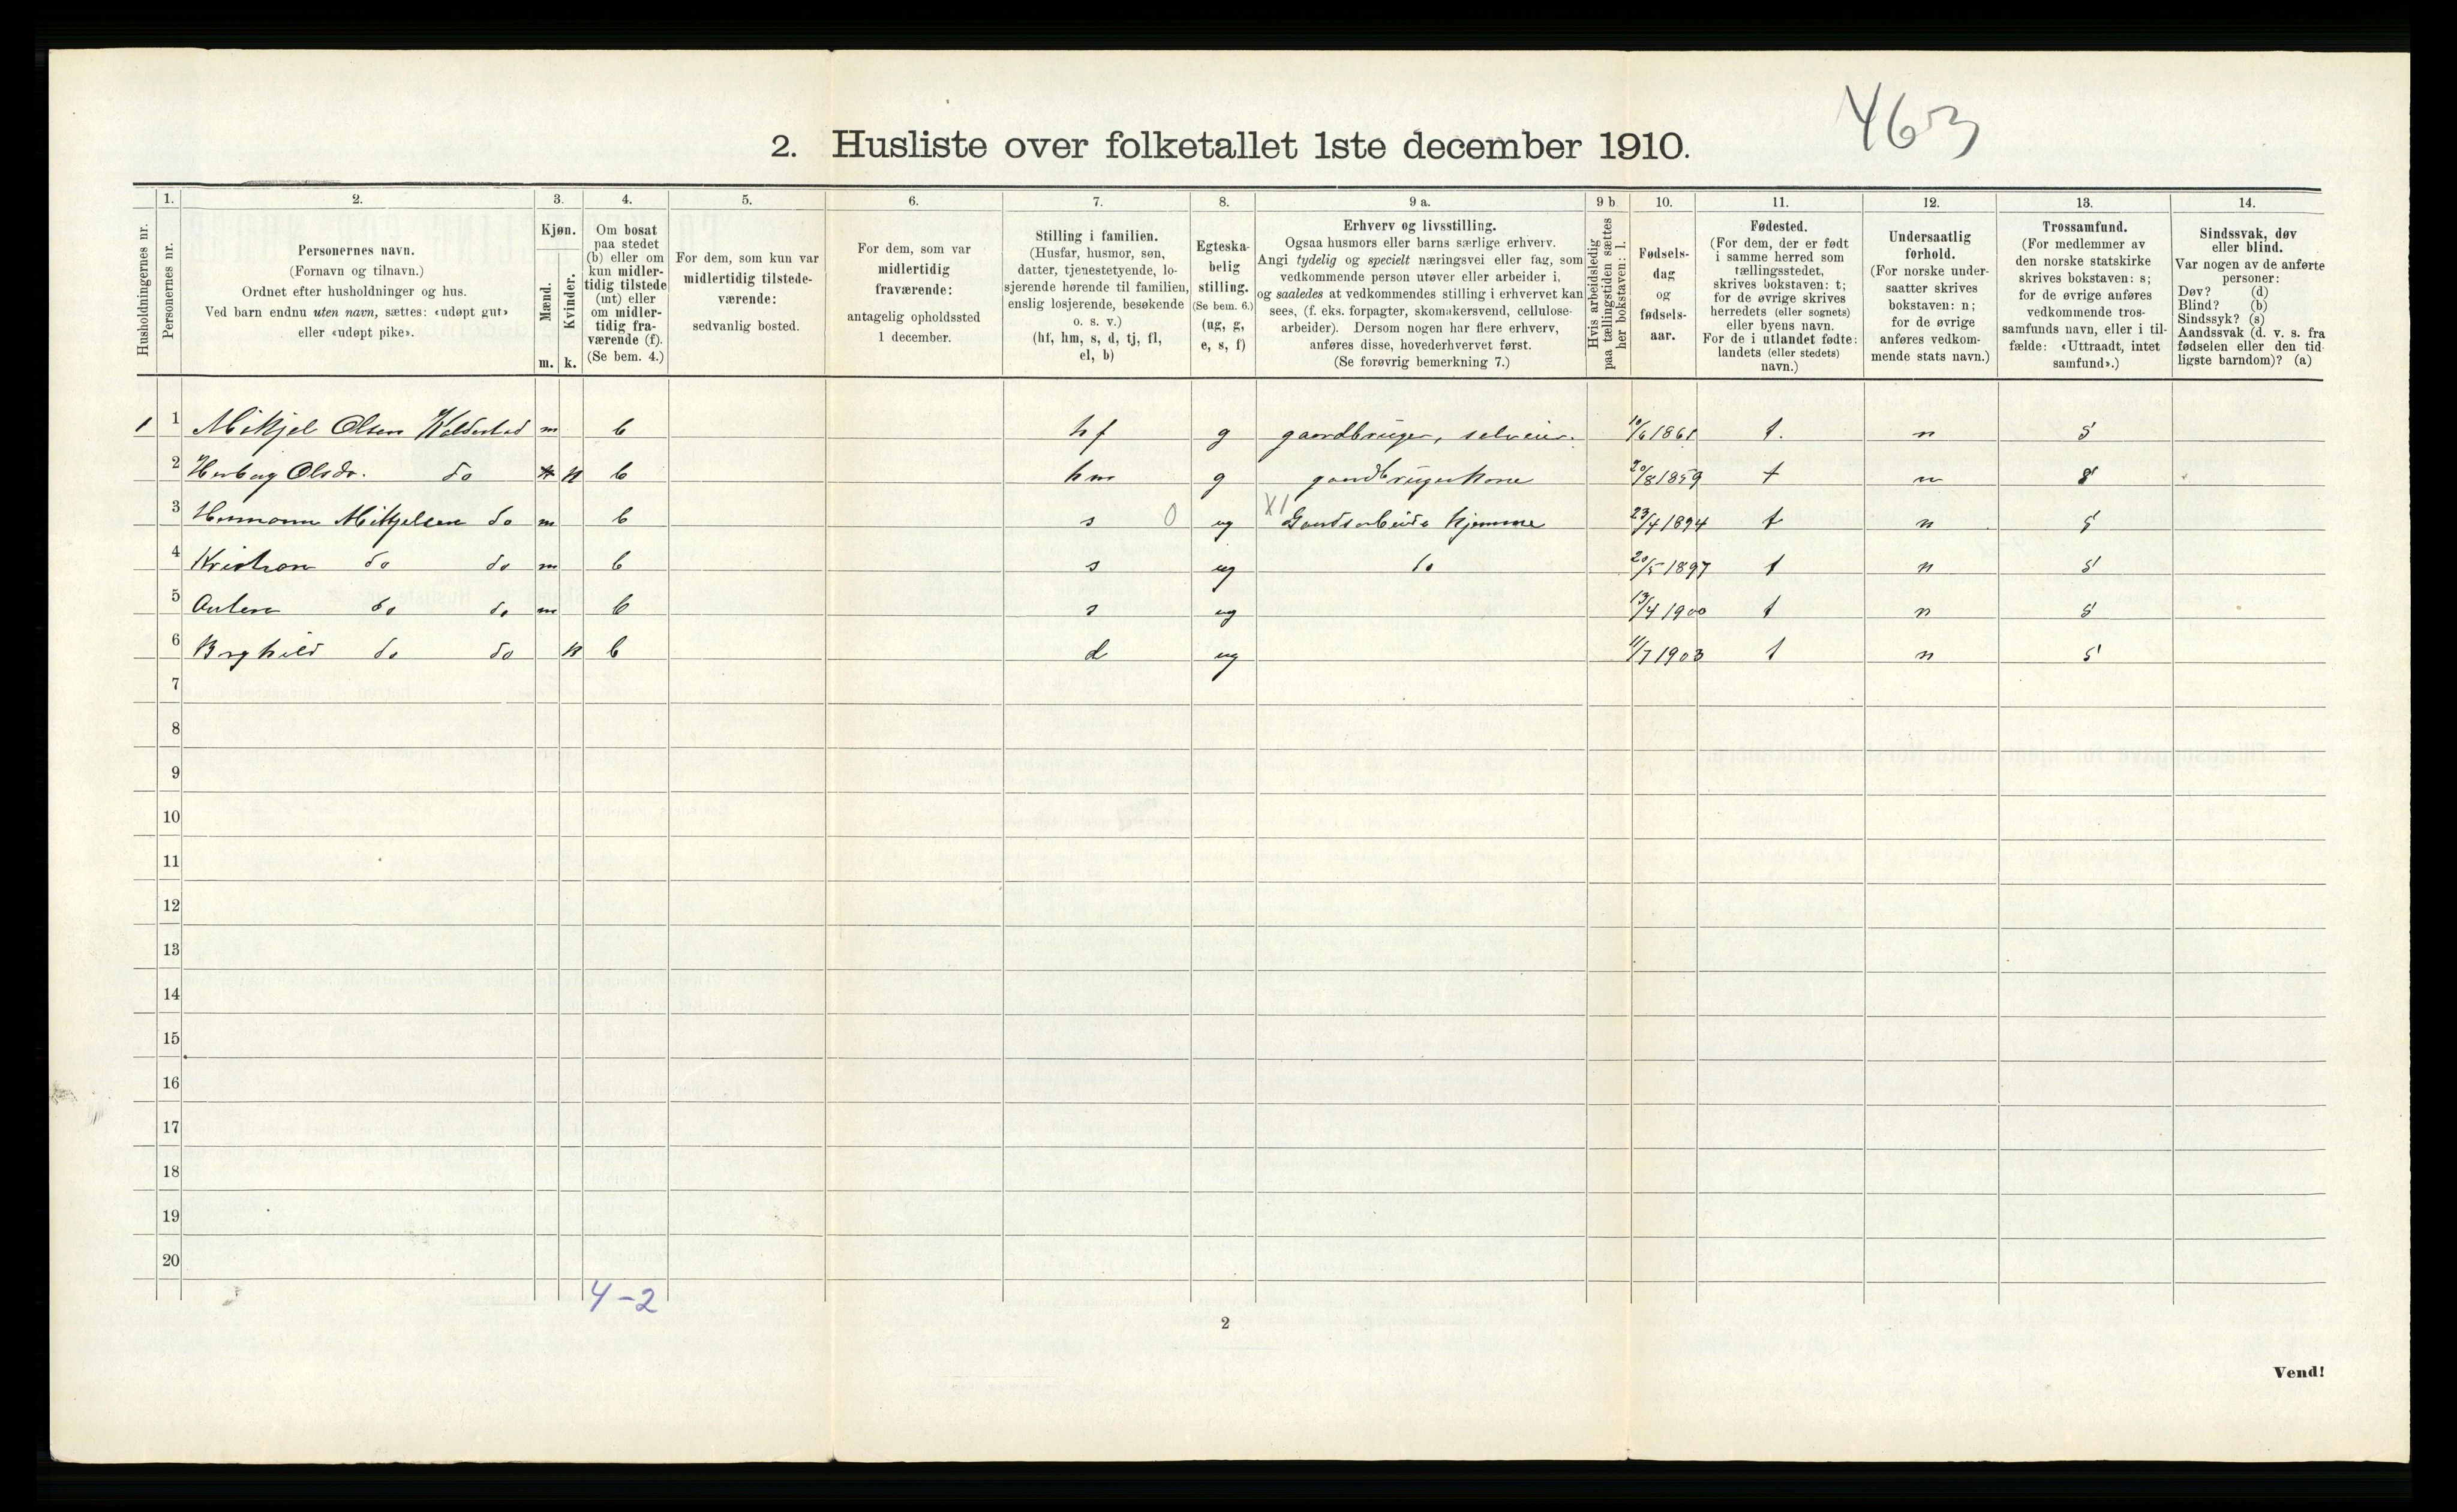 463
2. Husliste over folketallet 1ste december 1910.
Husholdningernes nr.
1.
Personernes nr.
2.
Personernes navn.
(Fornavn og tilnavn.)
Ordnet efter husholdninger og hus.
Ved barn endnu uten navn, sættes: «udøpt gut»
eller «udøpt pike».
3.
Kjøn.
Mænd.
Kvinder.
m. k.
4.
Om bosat
paa stedet
(b) eller om
kun midler-
tidig tilstede
(mt) eller
om midler-
tidig fra-
værende (f).
(Se bem. 4.)
5.
For dem, som kun var
midlertidig tilstede-
værende:
sedvanlig bosted.
6.
For dem, som var
midlertidig
fraværende:
antagelig opholdssted
1 december.
7.
Stilling i familien.
(Husfar, husmor, søn,
datter, tjenestetyende, lo-
sjerende hørende til familien,
enslig losjerende, besøkende
o. s. v.)
(hf, hm, s, d, tj, fl,
el, b)
8.
Egteska-
belig
stilling.
(Se bem. 6.)
(ug, g,
e, s, f)
9 a.
Erhverv og livsstilling.
Ogsaa husmors eller barns særlige erhverv.
Angi tydelig og specielt næringsvei eller fag, som
vedkommende person utøver eller arbeider i,
og saaledes at vedkommendes stilling i erhvervet kan
sees, (f. eks. forpagter, skomakersvend, cellulose-
arbeider). Dersom nogen har flere erhverv,
anføres disse, hovederhvervet først.
(Se forøvrig bemerkning 7.)
9 b
Hvis arbeidsledig
paa tællingstiden sættes
her bokstaven: l.
10.
Fødsels-
dag
og
fødsels-
aar.
11.
Fødested.
(For dem, der er født
i samme herred som
tællingsstedet,
skrives bokstaven: t;
for de øvrige skrives
herredets (eller sognets)
eller byens navn.
For de i utlandet fødte:
landets (eller stedets)
navn.)
12.
Undersaatlig
forhold.
(For norske under-
saatter skrives
bokstaven: n;
for de øvrige
anføres vedkom-
mende stats navn.)
13.
Trossamfund.
(For medlemmer av
den norske statskirke
skrives bokstaven: s;
for de øvrige anføres
vedkommende tros-
samfunds navn, eller i til-
fælde: «Uttraadt, intet
samfund».)
14.
Sindssvak, døv
eller blind.
Var nogen av de anførte
personer:
Døv? (d)
Blind? (b)
Sindssyk? (s)
Aandssvak (d. v. s. fra
fødselen eller den tid-
ligste barndom)? (a)
1 1 Mikjel Olsen m b hf g gaardbruger, selveier. 10/6 1861 t. n s
2 Olsdr. do k b hm g gaardbrugerkone 20/8 1859 t n s
3 Hermann Mikjelsen do m b s 0 ug XI Gaardsarbeide hjemme 23/4 1894 t n s
4 Kristian do do m b s ug do 20/5 1897 t n s
5 do do m b s ug 13/4 1900 t n s
6 Borghild do do k b d ug 11/7 1903 t n s
7
8
9
10
11
12
13
14
15
16
17
18
19
20
4-2
2
Vend!